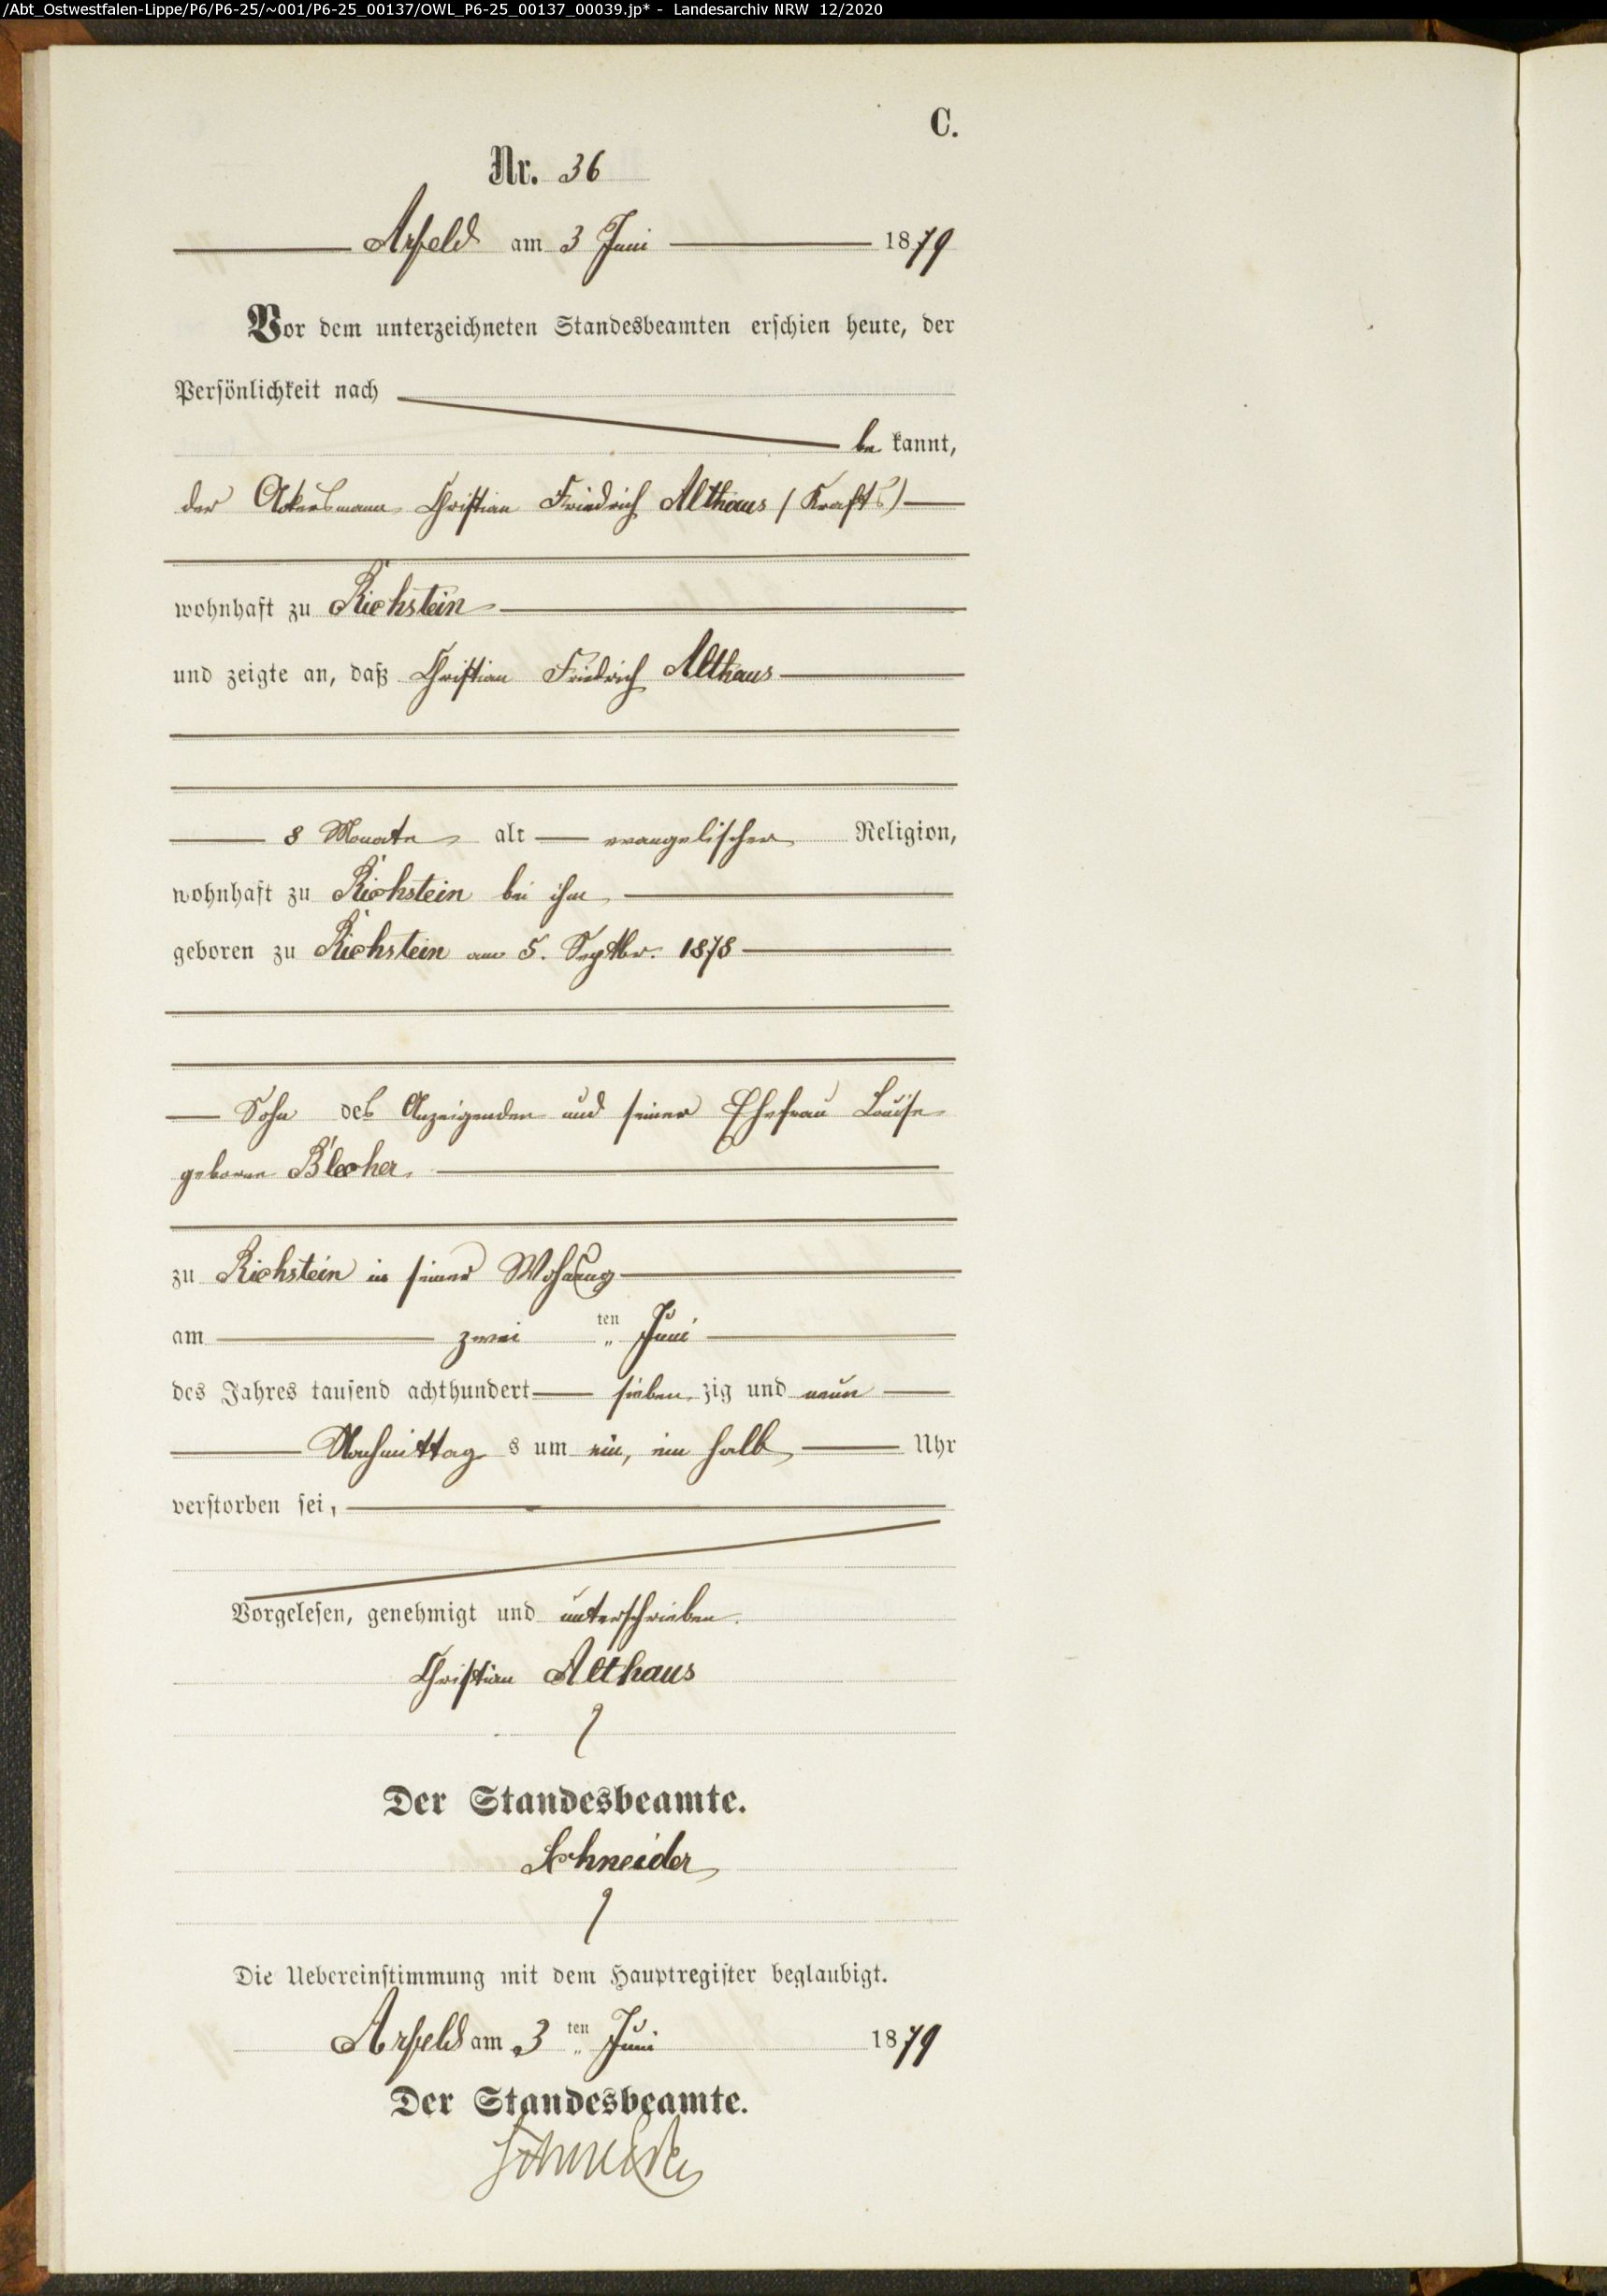 /Abt_Ostwestfalen-Lippe/P6/P6-25/~001/P6-25_00137/OWL_P6-25_00137_00039.jp* - Landesarchiv NRW 12/2020
C.
Nr. 36
Arfeld am 3 Juni 1879
Vor dem unterzeichneten Standesbeamten erschien heute, der
Persönlichkeit nach
be kannt,
der Ackersmann Christian Friedrich Althaus (Krafts)
wohnhaft zu Richstein
und zeigte an, daß Christian Friedrich Althaus
8 Monate alt evangelischer Religion,
wohnhaft zu Richstein bei ihm
geboren zu Richstein am 5. Septbr. 1878
Sohn des Anzeigenden und seiner Ehefrau Louise
geborne Blecher
zu Richstein in seiner Wohnung
am zwei ten Juni
des Jahres tausend achthundert sieben zig und neun
Nachmittag s um ein, ein halb Uhr
verstorben sei,
Vorgelesen, genehmigt und unterschrieben.
Christian Althaus
Der Standesbeamte.
Schneider
Die Uebereinstimmung mit dem Hauptregister beglaubigt.
Arfeld am 3 ten Juni 1879
Der Standesbeamte.
Schneider